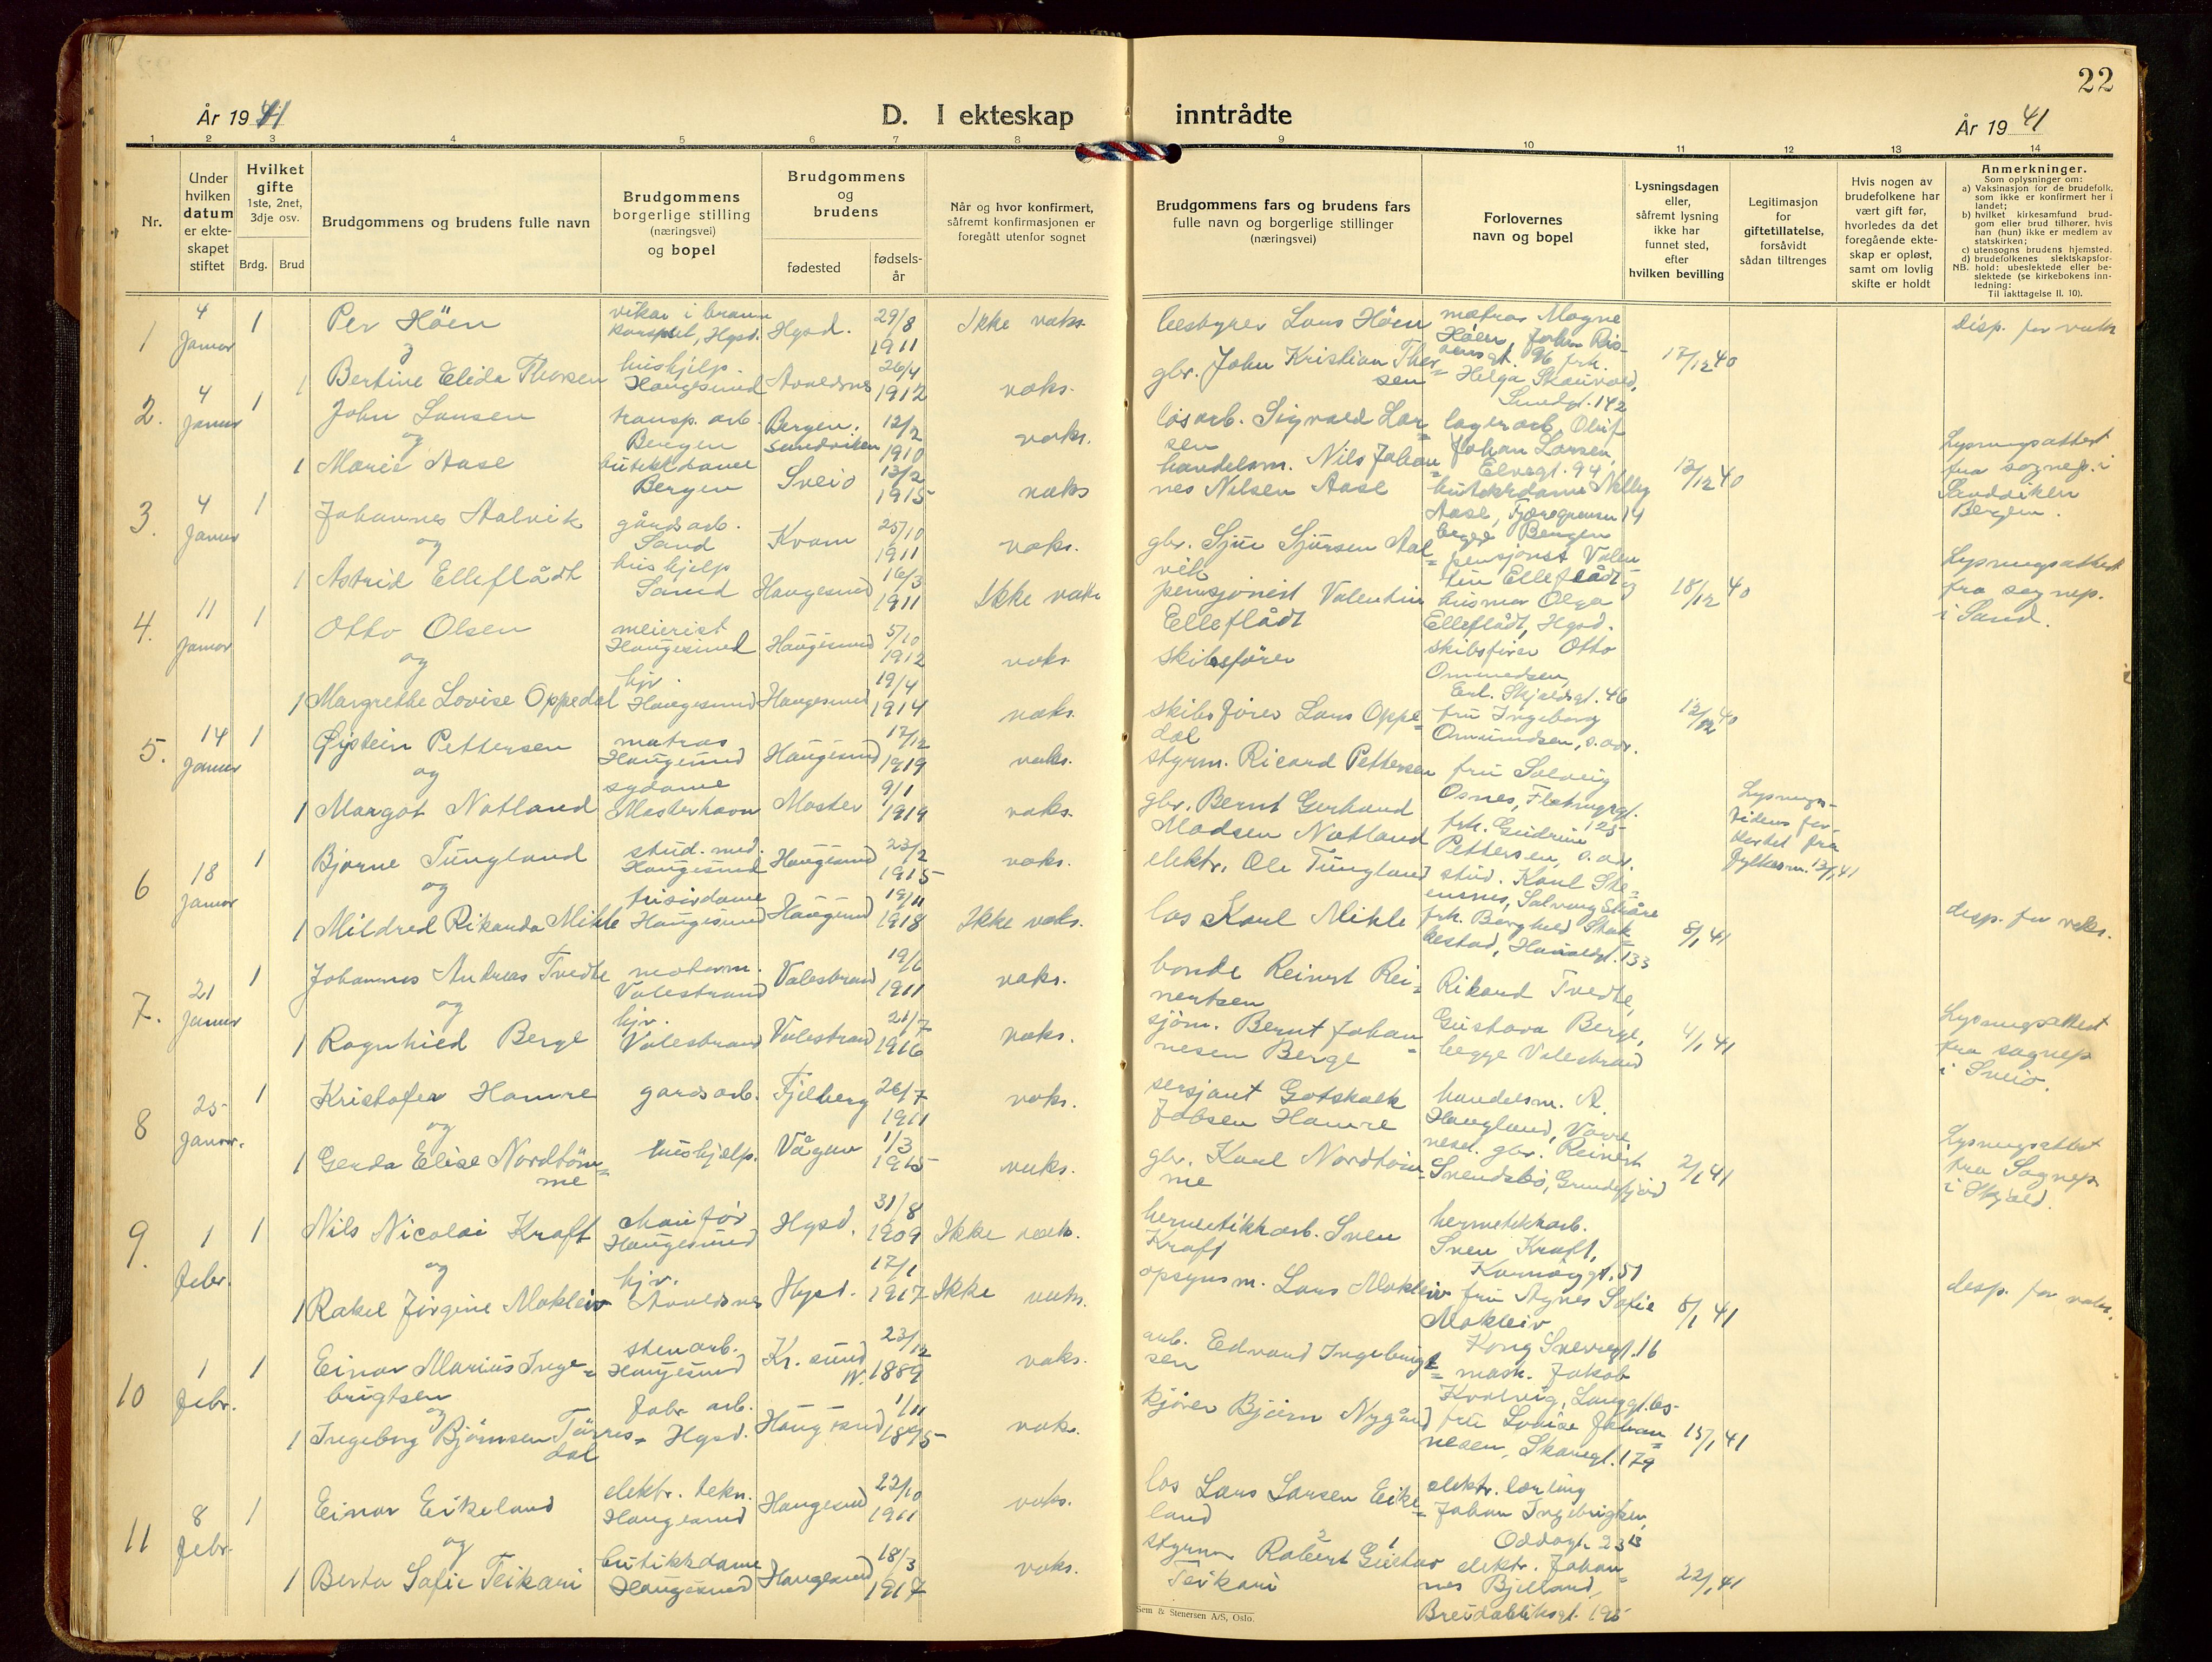 22
År 1941
D. I ekteskap inntrådte
År 1941
1 2 3 4 5 6 7 8 9 10 11 12 13 14
Nr.
Under hvilken datum er ekteskapet stiftet
Hvilket gifte 1ste, 2net, 3dje osv.
Brdg. Brud
Brudgommens og brudens fulle navn
Brudgommens borgerlige stilling (næringsvei) og bopel
Brudgommens og brudens
fødested
fødselsår
Når og hvor konfirmert, såfremt konfirmasjonen er foregått utenfor sognet
Brudgommens fars og brudens fars fulle navn og borgerlige stillinger (næringsvei)
Forlovernes navn og bopel
Lysningsdagen eller, såfremt lysning ikke har funnet sted, efter hvilken bevilling
Legitimasjon for giftetillatelse, forsåvidt sådan tiltrenges
Hvis nogen av brudefolkene har vært gift før, hvorledes da det foregående ekteskap er opløst, samt om lovlig skifte er holdt
Anmerkninger.
Som oplysninger om:
a) Vaksinasjon for de brudefolk, som ikke er konfirmert her i landet;
b) hvilket kirkesamfund brudgom eller brud tilhører, hvis han (hun) ikke er medlem av statskirken;
c) utensogns brudens hjemsted.
d) brudefolkenes slektskapsforhold: ubeslektede eller beslektede (se kirkebokens innledning:
NB.
Til iakttagelse II. 10).
1 4 Januar 1 Per Höen Hgsd. 29/8 1911 Ikke vaks. Lars Höen matros Magne Höen, disp. for vaks
og
1 Bertine Elida Thorsen hushjelp Haugesund Avaldsnes 26/4 1912 vaks. gbr. John Kristian Thorsen Helga 17/12 40
2. 4 Januar 1 John Larsen transp. arb. Bergen Bergen, Sandviken 12/2 1910 vaks. løsarb. Sigvald Larsen lagerarb. Oluf Johan Larsen, Elvegt. 94,
og
1 Marie Aase butikkdame Bergen Sveio 13/2 1915 vaks handelsm. Nils Johannes Nilsen Aase butikkdame Nelly Aase, begge Bergen 12/12 40 Lysningsattest fra sognep. i Sandviken Bergen.
3. 4 Januar 1 Johannes Aalvik gårdsarb. Sand Kvam 25/10 1911 vaks. gbr. Sjur Sjursen Aalvik pensjonist Valentin Elleflådt og
og
1 Astrid Elleflådt hushjelp Sand Haugesund 16/3 1911 Ikke vaks pensjonist Valentin Elleflådt husmor Olga Elleflådt, Hgsd. 18/12 40 Lysningsattest fra sognep. i Sand.
4. 11 Januar 1 Otto Olsen meierist Haugesund Haugesund 5/10 1912 vaks. skibsfører skibsfører Otto Ommundsen, Erl. Skjalgsgt. 46
og
1 Margrethe Lovise Oppedal hjv. Haugesund Haugesund 19/4 1914 vaks. skibsfører Lars Oppedal fru Ingeborg Ommundsen, s. adr. 12/12 40
5. 14 Januar 1 Øystein Pettersen matros Haugesund Haugesund 17/12 1919 vaks. styrm. Ricard Pettersen fru Solveig Osnes, Flotmyrgt. 125
og
1 Margot Natland sydame Mosterhavn Moster 9/1 1919 vaks. gbr. Bernt Gerhard Madsen Natland frk. Gudrun Pettersen, s. adr. Lysningstidens fra fylkesm. 13/1 41
6 18 Januar 1 Bjarne Tungland stud. med. Haugesund Haugesund 23/2 1915 vaks. elektr. Ole Tungland stud. Karl
og
1 Mildred Rikarda Mihle frisørdame Haugesund Haugesund 19/11 1918 Ikke vaks. los Karl Mihle frk. Borghild Haraldsgt. 133 8/1 41 disp. for vaks.
7. 21 Januar 1 Johannes Andreas Tvedte motorm. Valestrand Valestrand 19/6 1911 vaks. bonde Reinert Reinertsen Rikard Tvedte,
og
1 Ragnhild Berge hjv. Valestrand Valestrand 21/7 1916 vaks. sjøm. Bernt Johannesen Berge Gustava Berge, begge Valestrand 4/1 41 Lysningsattest fra sognep i Sveio.
8 25 Januar. 1 Kristofer Hamre gardsarb. Fjelberg 26/7 1911 vaks. sersjant Gotskalk Jobsen Hamre handelsm. A. Haugland,
og
1 Gerda Elise Nordtömme hushjelp. Vågan 1/3 1915 vaks. gbr. Karl Nordtömme gbr. Reinert Svendsbö, 2/1 41 Lysningsattest fra Sognep i Skjold.
9. 1 Febr. 1 Nils Nicolai Kraft chauffør Haugesund Hgsd. 31/8 1909 Ikke vaks. hermetikkarb. Sven Kraft hermetikkarb. Sven Kraft, Karmöygt. 51
og
1 Rakel Jørgine Mokleiv hjv. Avaldsnes Hgsd. 17/1 1917 Ikke vaks. opsynsm. Lars Mokleiv fru Agnes Sofie Mokleiv Kong Sverregt. 16 8/1 41 desp. for vaks.
10 1 Febr. 1 Einar Marius Ingebrigtsen stenarb. Haugesund Kr. sund N. 23/12 1889 vaks. arb. Edvard Ingebrigtsen mask. Jakob Kvalvig,
og
1 Ingeborg Björnsen Tørresdal Fabr. arb. Hgsd. Haugesund 1/11 1895 vaks. kjører Bjørn Nygård fru Lovise Johannesen, Skaregt. 179 15/1 41
11 8 Febr. 1 Einar Eikeland elektr. tekn. Haugesund Haugesund 22/10 1911 vaks. los Lars Larsen Eikeland elektr. lærling Johan Ingebrigtsen, Oddagt. 23
og
1 Berta Sofie Teikari butikkdame Haugesund Haugesund 18/3 1917 vaks. styrm. Robert Gustav Teikari elektr. Johannes Bjelland, Breidabliksgt. 195 22/1 41
Sem & Stenersen A/S, Oslo.